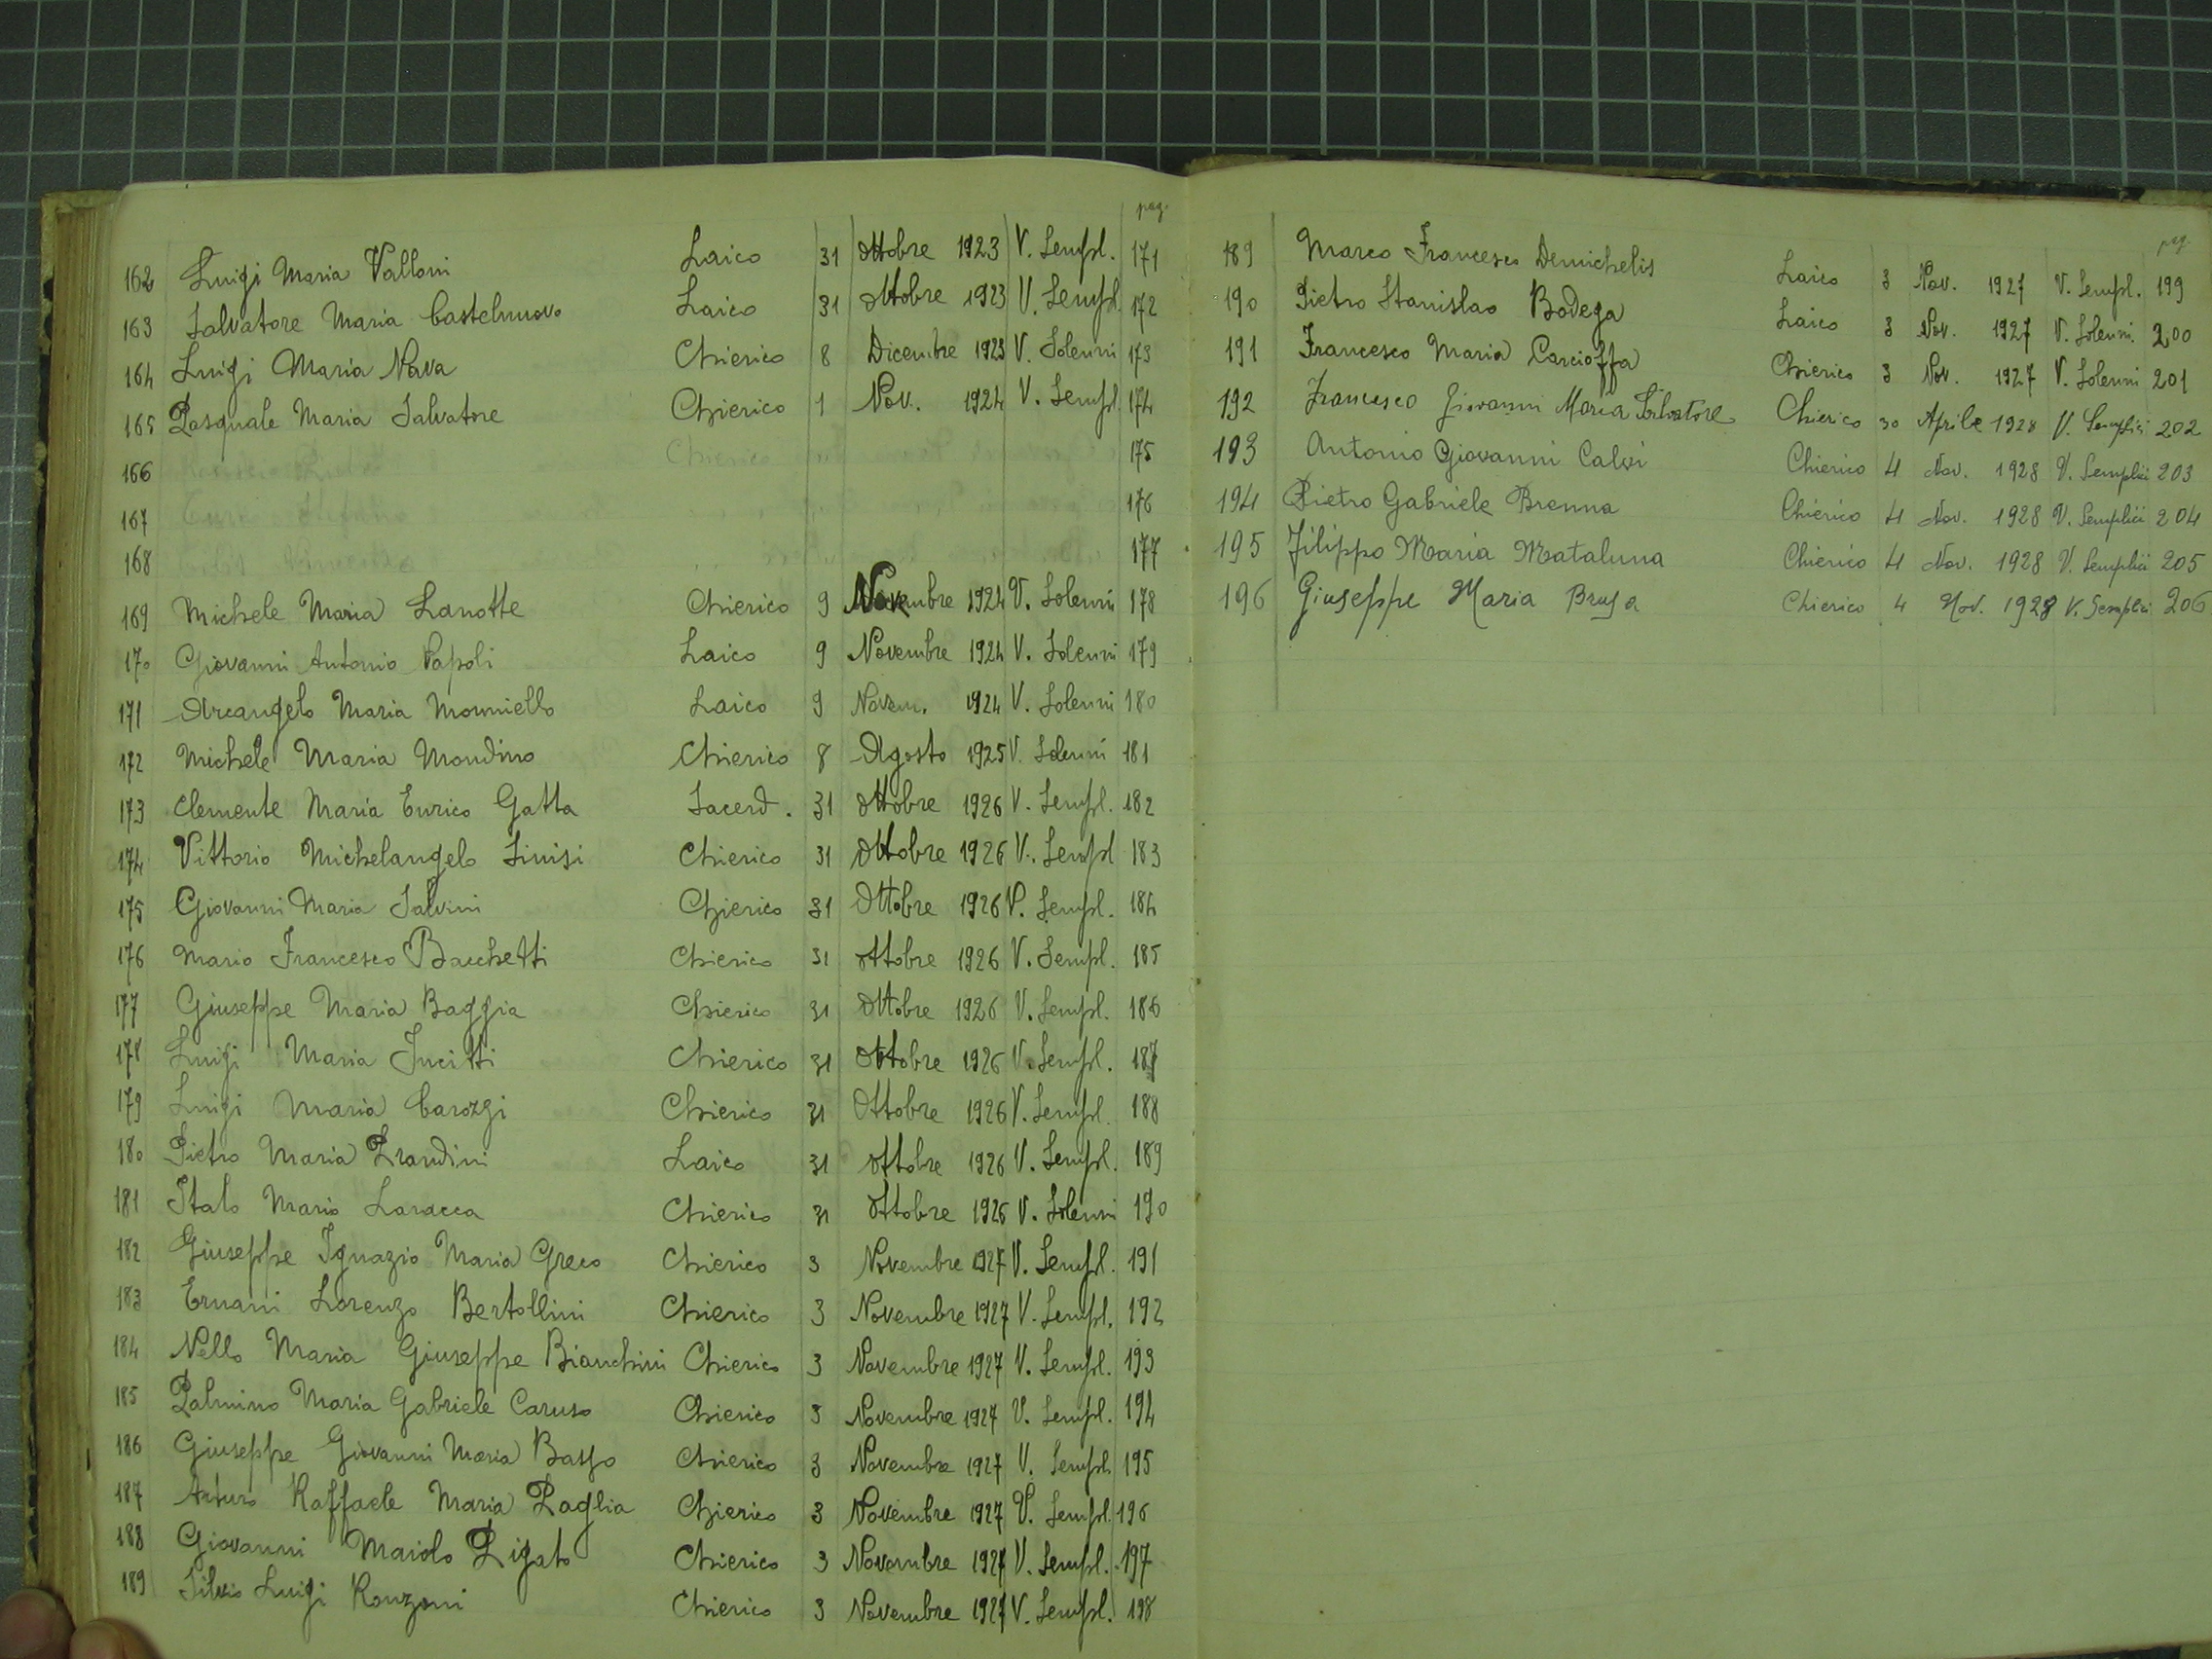 pag.
162 Luigi Maria Valloni Laico 31 Ottobre 1923 V. Sempl. 171
163 Salvatore Maria Castelnuovo Laico 31 Ottobre 1923 V. Sempl. 172
164 Luigi Maria Nava Chierico 8 Dicembre 1923 V. Solenni 173
165 Pasquale Maria Salvatore Chierico 1 Nov. 1924 V. Sempl. 174
166 Chierico 175
167 176
168 177
169 Michele Maria Lanotte Chierico 9 Novembre 1924 V. Solenni 178
170 Giovanni Antonio Papoli Laico 9 Novembre 1924 V. Solenni 179
171 Arcangelo Maria Mormiello Laico 9 Novem. 1924 V. Solenni 180
172 Michele Maria Mondino Chierico 8 Agosto 1925 V. Solenni 181
173 Clemente Maria Enrico Gatta Sacerd. 31 Ottobre 1926 V. Sempl. 182
174 Vittorio Michelangelo Sinisi Chierico 31 Ottobre 1926 V. Sempl 183
175 Giovanni Maria Salvini Chierico 31 Ottobre 1926 V. Sempl. 184
176 Mario Francesco Bacchetti Chierico 31 Ottobre 1926 V. Sempl. 185
177 Giuseppe Maria Baggia Chierico 31 Ottobre 1926 V. Sempl. 186
178 Luigi Maria Incitti Chierico 31 Ottobre 1926 V. Sempl. 187
179 Luigi Maria Carozzi Chierico 31 Ottobre 1926 V. Sempl. 188
180 Pietro Maria Prandini Laico 31 Ottobre 1926 V. Sempl. 189
181 Italo Mario Laracca Chierico 31 Ottobre 1926 V. Solenni 190
182 Giuseppe Ignazio Maria Greco Chierico 3 Novembre 1927 V. Sempl. 191
183 Ernani Lorenzo Bertollini Chierico 3 Novembre 1927 V. Sempl. 192
184 Nello Maria Giuseppe Bianchini Chierico 3 Novembre 1927 V. Sempl. 193
185 Palmino Maria Gabriele Caruso Chierico 3 Novembre 1927 V. Sempl. 194
186 Giuseppe Giovanni Maria Basso Chierico 3 Novembre 1927 V. Sempl. 195
187 Arturo Raffaele Maria Paglia Chierico 3 Novembre 1927 V. Sempl. 196
188 Giovanni Maiolo Pigato Chierico 3 Novembre 1927 V. Sempl. 197
189 Silvio Luigi Ronzoni Chierico 3 Novembre 1927 V. Sempl. 198
pag.
189 Marco Francesco Demichelis Laico 3 Nov. 1927 V. Sempl. 199
190 Pietro Stanislao Bodega Laico 3 Nov. 1927 V. Solenni. 200
191 Francesco Maria Carcioffa Chierico 3 Nov. 1927 V. Solenni 201
192 Francesco Giovanni Maria Salvatore Chierico 30 Aprile 1928 V. Semplici 202
193 Antonio Giovanni Calvi Chierico 4 Nov. 1928 V. Semplici 203
194 Pietro Gabriele Brenna Chierico 4 Nov. 1928 V. Semplici 204
195 Filippo Maria Mataluna Chierico 4 Nov. 1928 V. Semplici 205
196 Giuseppe Maria Brusa Chierico 4 Nov. 1928 V. Semplici 206